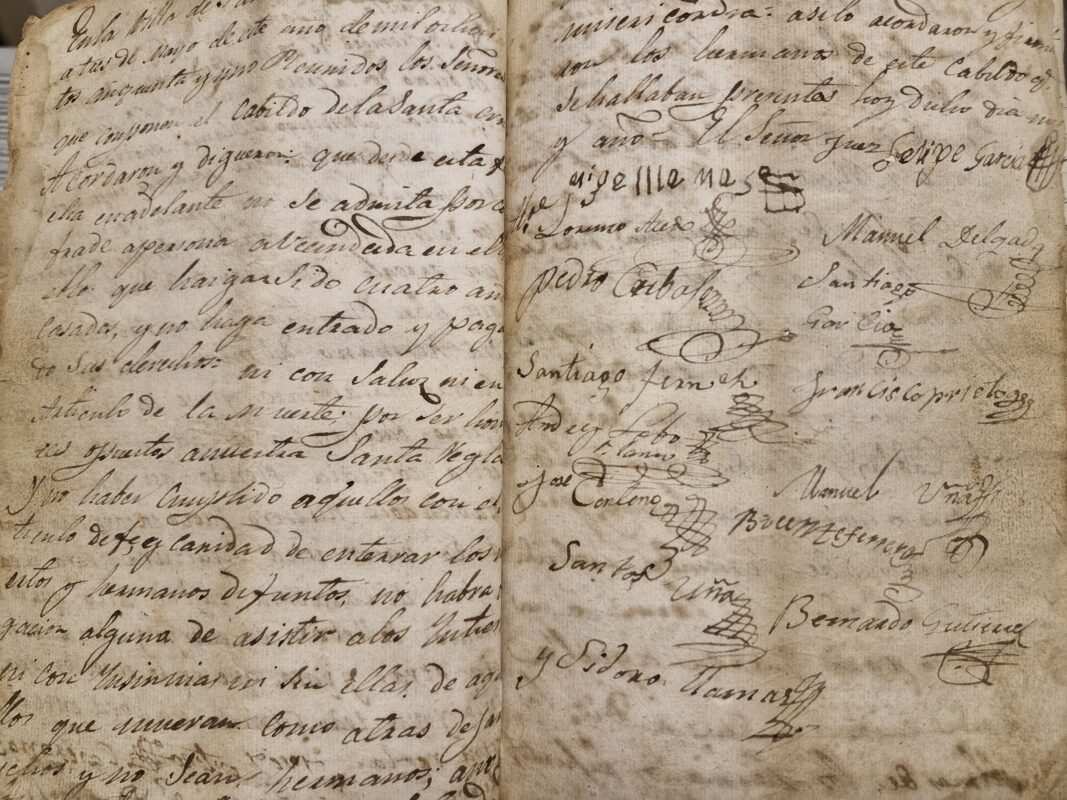 En la Villa de
a tres de Mayo de este año de mil ocho
tos cinquenta y uno Reunidos los Señor
que componen el Cabildo de la Santa
Acordaron y digeron: que desde esta
cha en adelante no se admita por co
frade a persona avecindada en el
que haigan sido cuatro añ
Casados, y no haya entrado y paga
do sus derechos ni con salud ni en
Articulo de la muerte; por ser hom
opuestos a nuestra Santa Regla
Y no haber cumplido aquellos con el
ticulo de fe, y caridad de enterrar los
y hermanos difuntos, no habra
gacion alguna de asistir a los Entie
ni con Insinias ni sin ellas, de aqu
llos que mueran como atras deja
y no sean hermanos;
misericordia: asi lo acordaron y firma
ron los hermanos de este Cabildo q.
se hallaban presentes hoy dicho dia m
y año = El Señor Juez Felipe Garcia
Lorenzo
Manuel Delgado
Pedro
Santiago
Garcia
Santiago fern
francisco prieto
Andres Lobo
Jose Centeno
Manuel Uña
Santos Uña
Bernardo Gutierrez
y Ysidoro Llamas